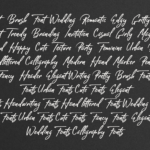 Brush Font Wedding Romantic Edgy Gritty
Trendy Branding Invitation Casual Girly
Happy Cute Future Party Feminine Urban
Handlettered Calligraphy Modern Hand Marker
Fancy Header Elegant Writing Pretty Brush Font
Fonts Urban Fonts Cute Fonts Elegant
Handwriting Fonts Hand lettered Fonts Wedding
Fonts Urban Fonts Cute Fonts Fancy Fonts Elegant
Wedding Fonts Calligraphy Fonts